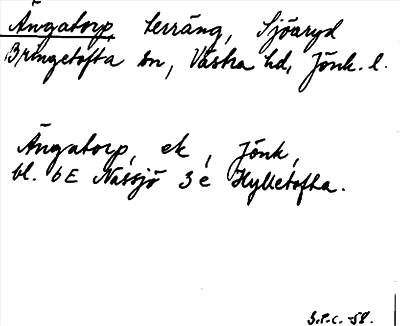 Ängatorp, terräng, Sjöaryd
Bringetofta sn, Västra hd, Jönk. l.
Ängatorp, ek, Jönk,
bl. 6E Nässjö 3e Hylletofta.
S.P.C. -58.